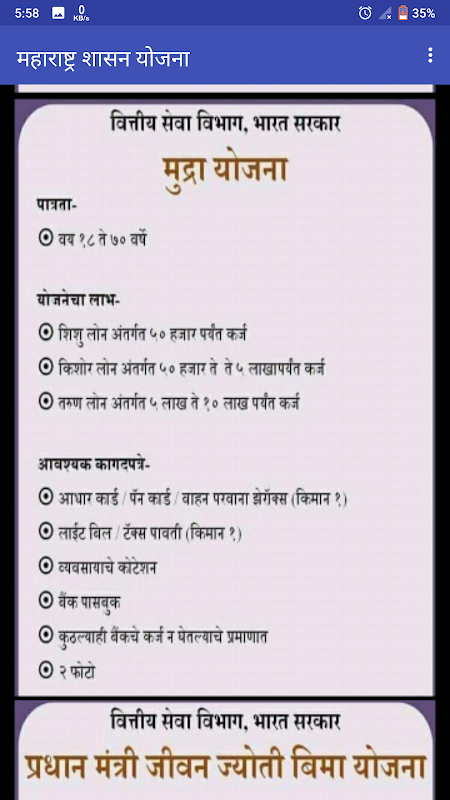 5:58
0
KB/s
35%
महाराष्ट्र शासन योजना
वित्तीय सेवा विभाग, भारत सरकार
मुद्रा योजना
पात्रता-
वय १८ ते ७० वर्षे
योजनेचा लाभ-
शिशु लोन अंतर्गत ५० हजार पर्यंत कर्ज
किशोर लोन अंतर्गत ५० हजार ते ते ५ लाखापर्यंत कर्ज
तरुण लोन अंतर्गत ५ लाख ते १० लाख पर्यंत कर्ज
आवश्यक कागदपत्रे-
आधार कार्ड / पॅन कार्ड / वाहन परवाना झेरॉक्स (किमान १)
लाईट बिल / टॅक्स पावती (किमान १)
व्यवसायाचे कोटेशन
बँक पासबुक
कुठल्याही बँकचे कर्ज न घेतल्याचे प्रमाणात
२ फोटो
वित्तीय सेवा विभाग, भारत सरकार
प्रधान मंत्री जीवन ज्योती बिमा योजना